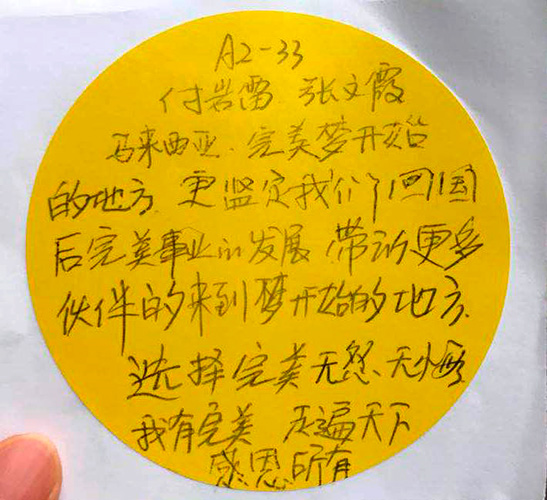 A2-33
付岩雷 张文霞
马来西亚.完美梦开始
的地方.更坚定我们了回国
后完美事业的发展 带动更多
伙伴的来到梦开始的地方.
选择完美无怨、无悔
我有完美 走遍天下
感恩所有